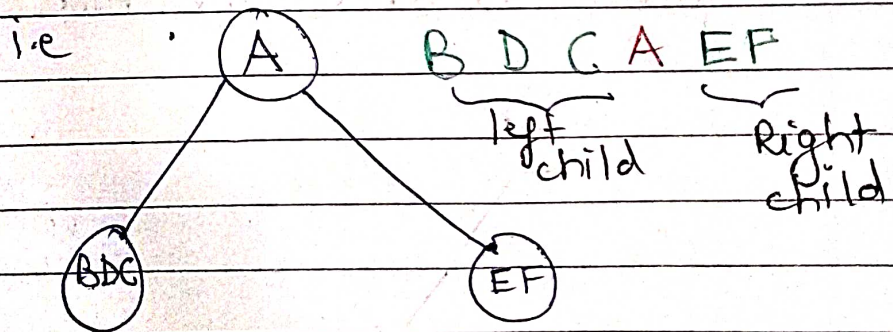 i.e
A
B D C A EF
left child
Right child
BDC
EF